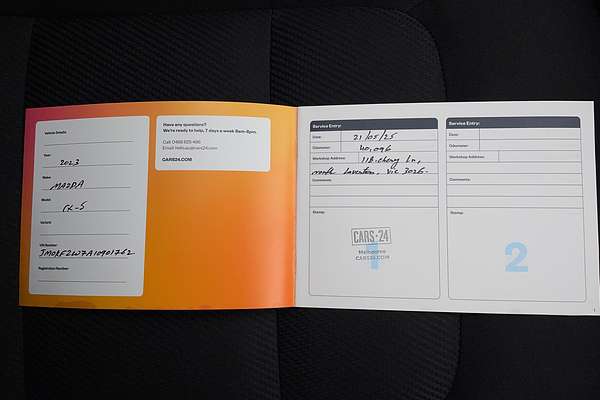 Vehicle Details
Year:
2023
Make
MAZDA
Model:
CX-5
Variant:
VIN Number
Registration Number:
Have any questions?
We're ready to help, 7 days a week 8am-8pm.
Call
Email
CARS24.COM
Service Entry:
Date:
21/05/25
Odometer:
40,096
Workshop Address:
Ln,
north Laverton, Vic 3026.
Comments:
Stamp:
CARS24
Melbourne
CARS24.COM
1
Service Entry:
Date:
Odometer:
Workshop Address:
Comments:
Stamp:
2
1